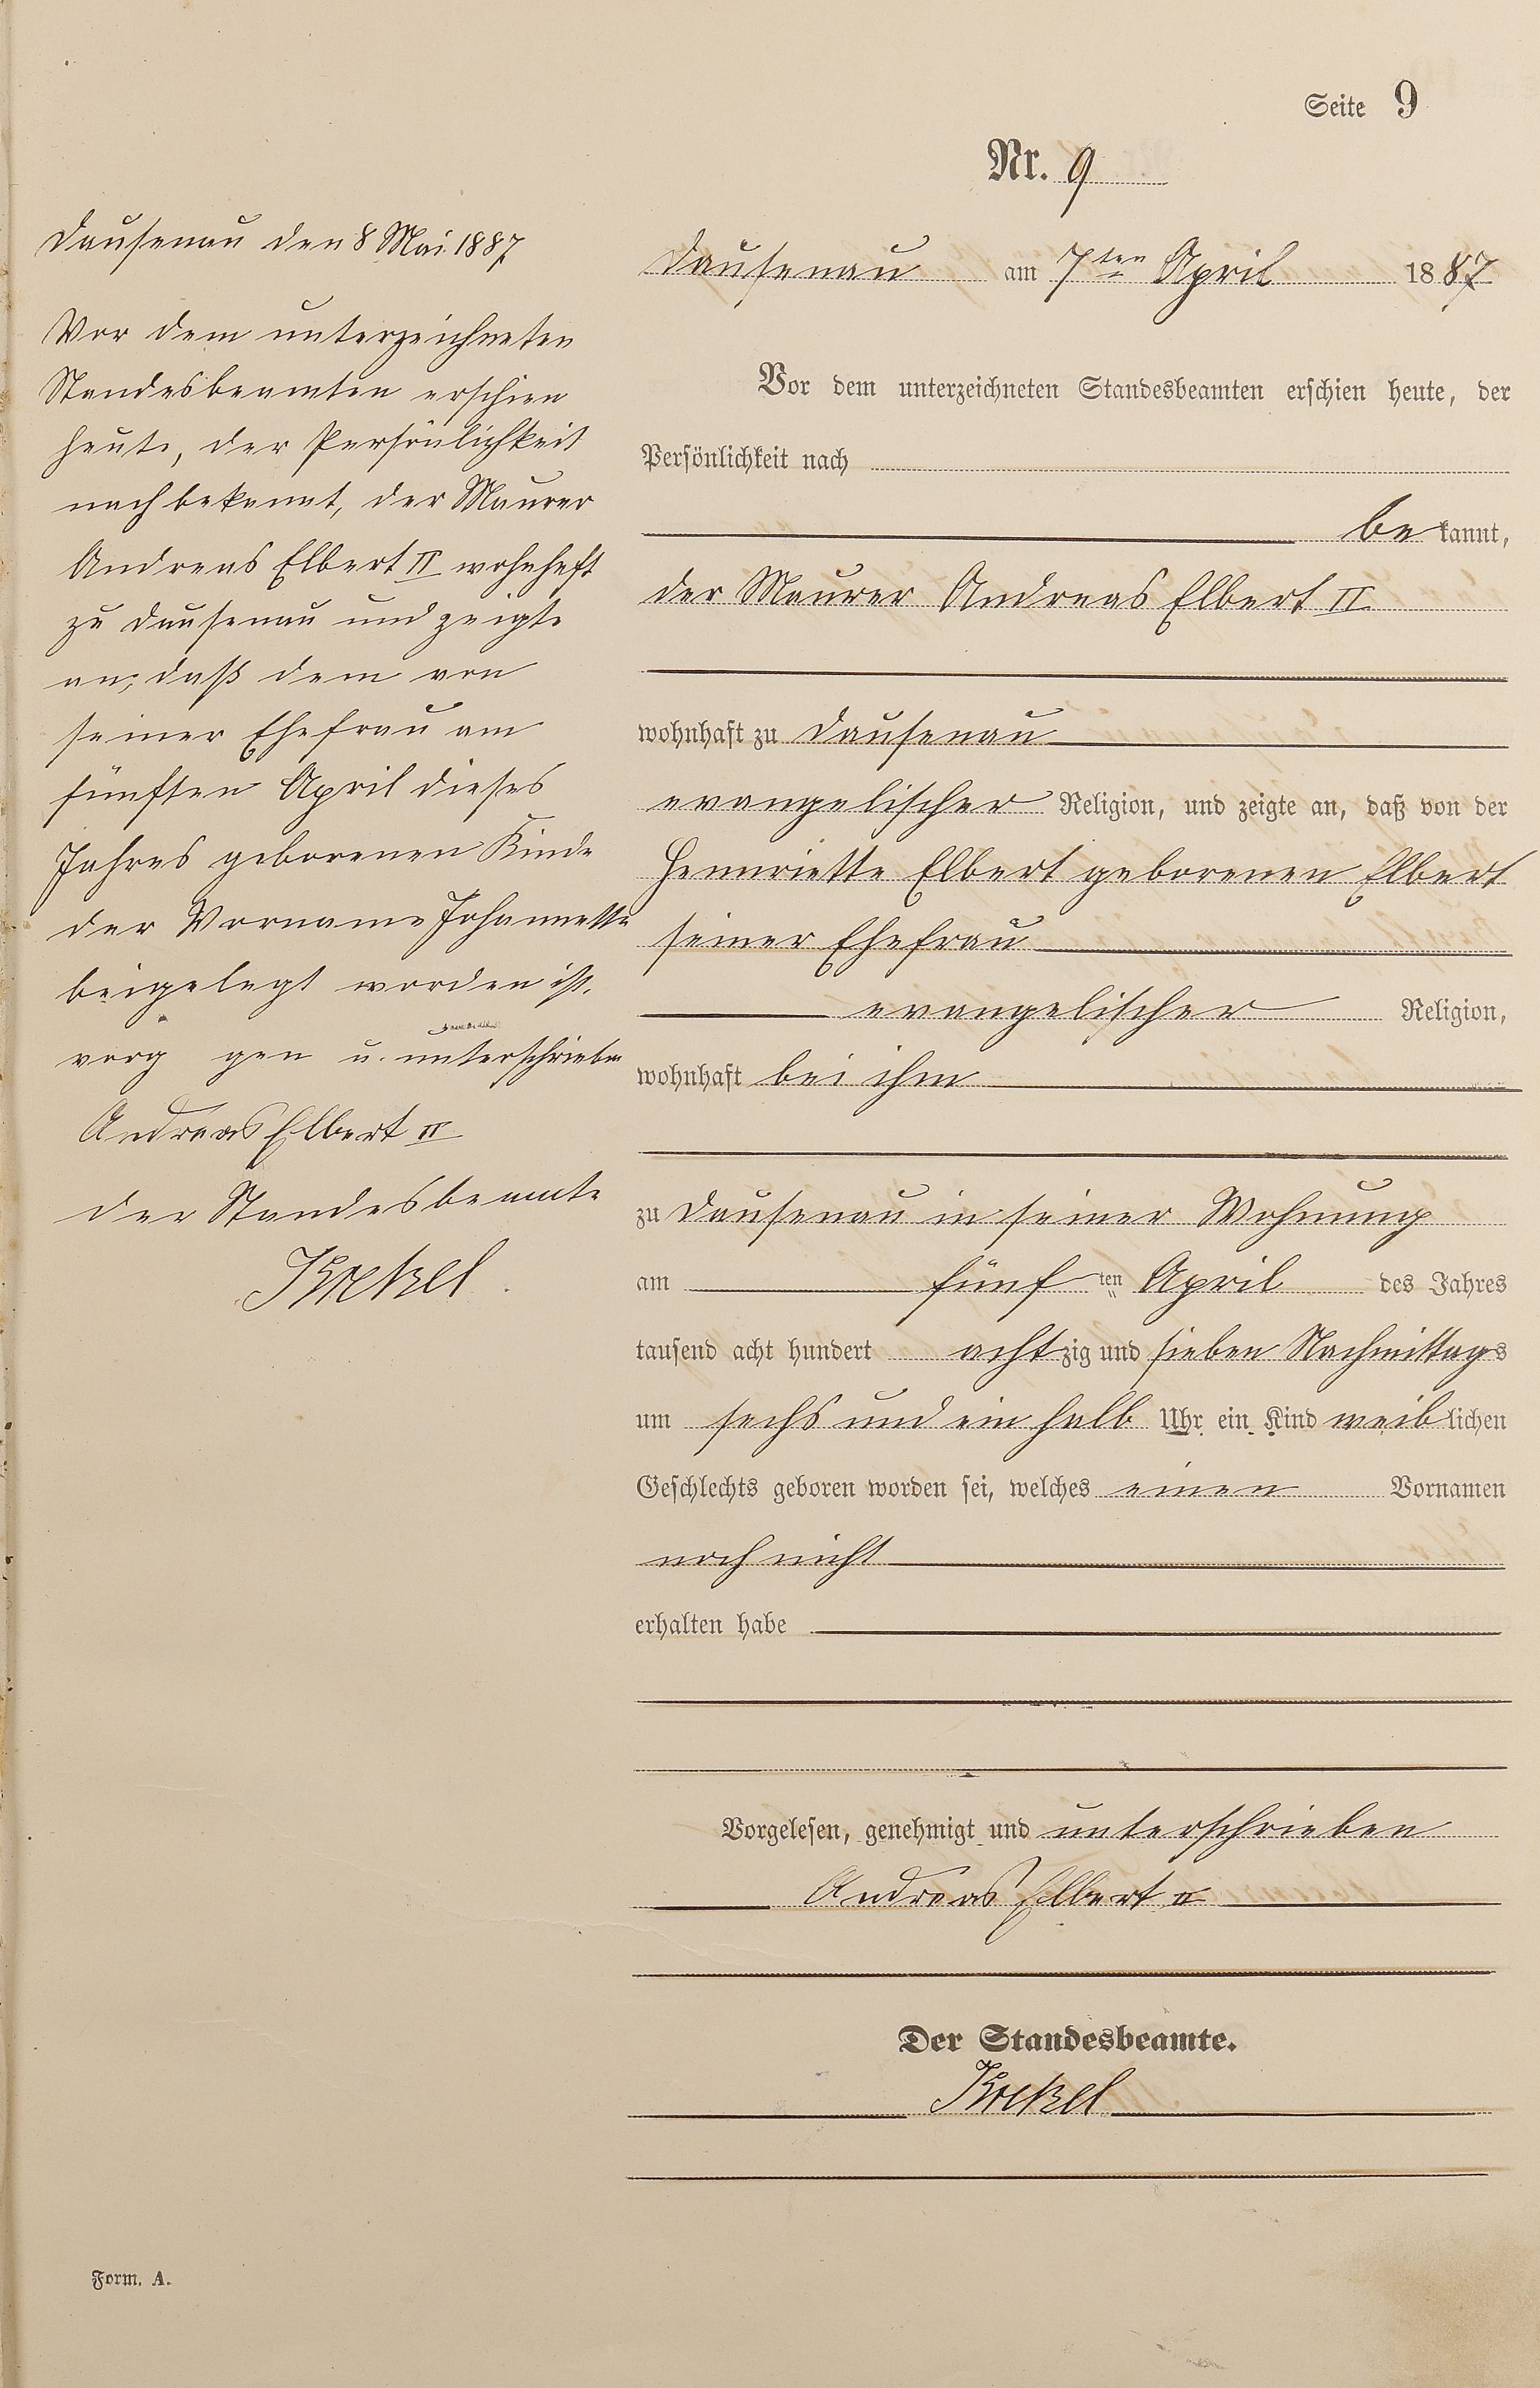 Seite 9
Nr. 9
Dausenau am 7ten April 1887
Vor dem unterzeichneten Standesbeamten erschien heute, der
Persönlichkeit nach
bekannt,
der Maurer Andreas Elbert II
wohnhaft zu Dausenau
evangelischer Religion, und zeigte an, daß von der
Hennriette Elbert geborenen Elbert
seiner Ehefrau
evangelischer Religion,
wohnhaft bei ihm
zu Dausenau in seiner Wohnung
am fünf ten April des Jahres
tausend acht hundert achtzig und sieben Nachmittags
um sechs und ein halb Uhr ein Kind weiblichen
Geschlechts geboren worden sei, welches einen Vornamen
noch nicht
erhalten habe
Vorgelesen, genehmigt und unterschrieben
Andreas Elbert II
Der Standesbeamte.
Dausenau den 8 Mai 1887
Vor dem unterzeichneten
Standesbeamten erschien
heute, der Persönlichkeit
nach bekannt, der Maurer
Andreas Elbert II wohnhaft
zu Dausenau und zeigte
an, daß dem von
seiner Ehefrau am
fünften April dieses
Jahres geborenen Kinde
der Vorname Johannette
beigelegt worden ist.
vorg gen u. unterschrieben
Andreas Elbert II
der Standesbeamte
Form. A.